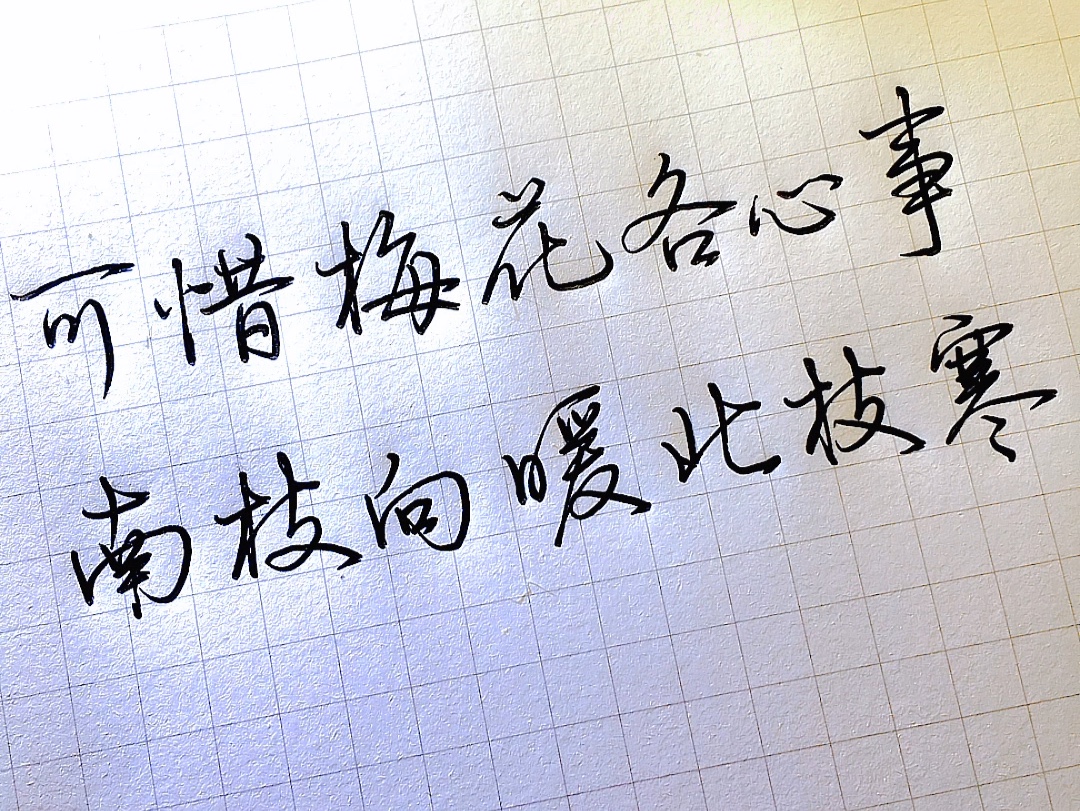 可惜梅花各心事
南枝向暖北枝寒